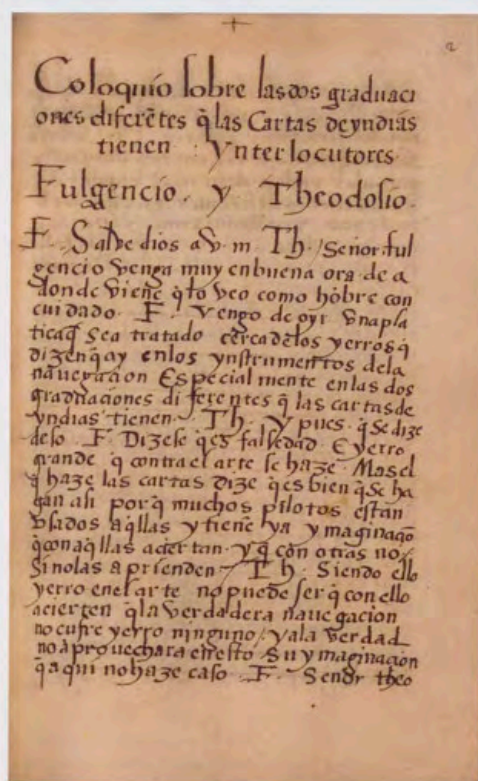 2
Coloquio sobre las dos graduaci
ones diferẽtes q̃ las Cartas de yndias
tienen · Ynterlocutores
Fulgencio · y Theodosio ·
F · Salve dios a v. m. Th. / Señor ful
gencio venga muy en buena ora de a
donde viene q̃ lo veo como hõbre con
cuidado · F · Vengo de oyr vna pla
tica q̃ sea tratado cerca de los yerros q̃
dizen q̃ ay en los ynstrumentos de la
nauegacion Especial mente en las dos
graduaciones diferentes q̃ las cartas de
yndias tienen · Th · y pues q̃ se dize
deso · F · Dizese q̃ es falsedad E yerro
grande q̃ contra el arte se haze · Mas el
q̃ haze las cartas dize q̃ es bien q̃ se ha
gan asi por q̃ muchos pilotos estan
vsados a q̃llas y tienẽ ya ymaginaçõ
q̃ con aq̃llas aciertan · y q̃ con otras no /
si no las aprienden · Th · Siendo ello
yerro en el arte no puede ser q̃ con ello
acierten q̃ la verdadera nauegacion
no cufre yerro ninguno / y a la verdad
no aprouechara en esto su ymaginacion
q̃ aqui no haze caso · F · Senor theo